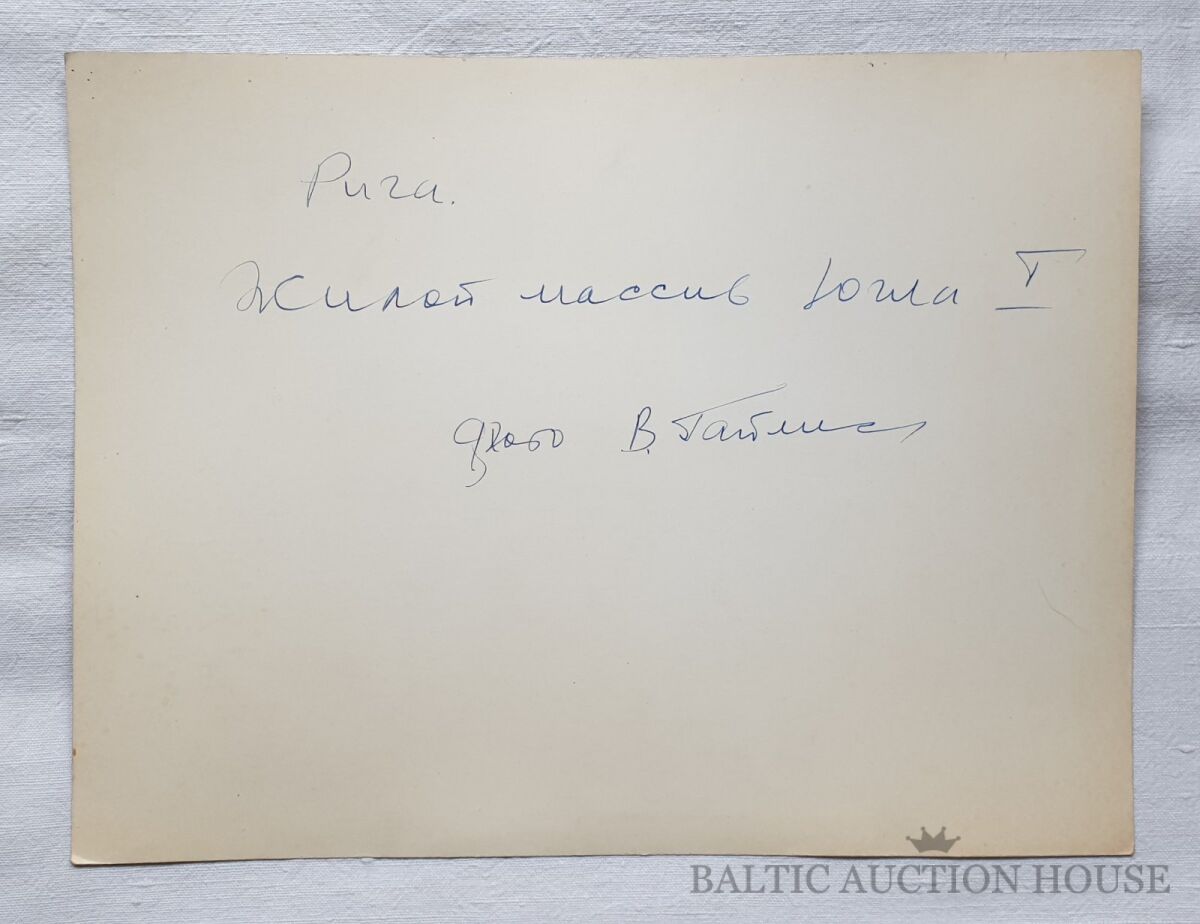 Рига.
Жилой массив Югла I
фото В. Гайлис
BALTIC AUCTION HOUSE